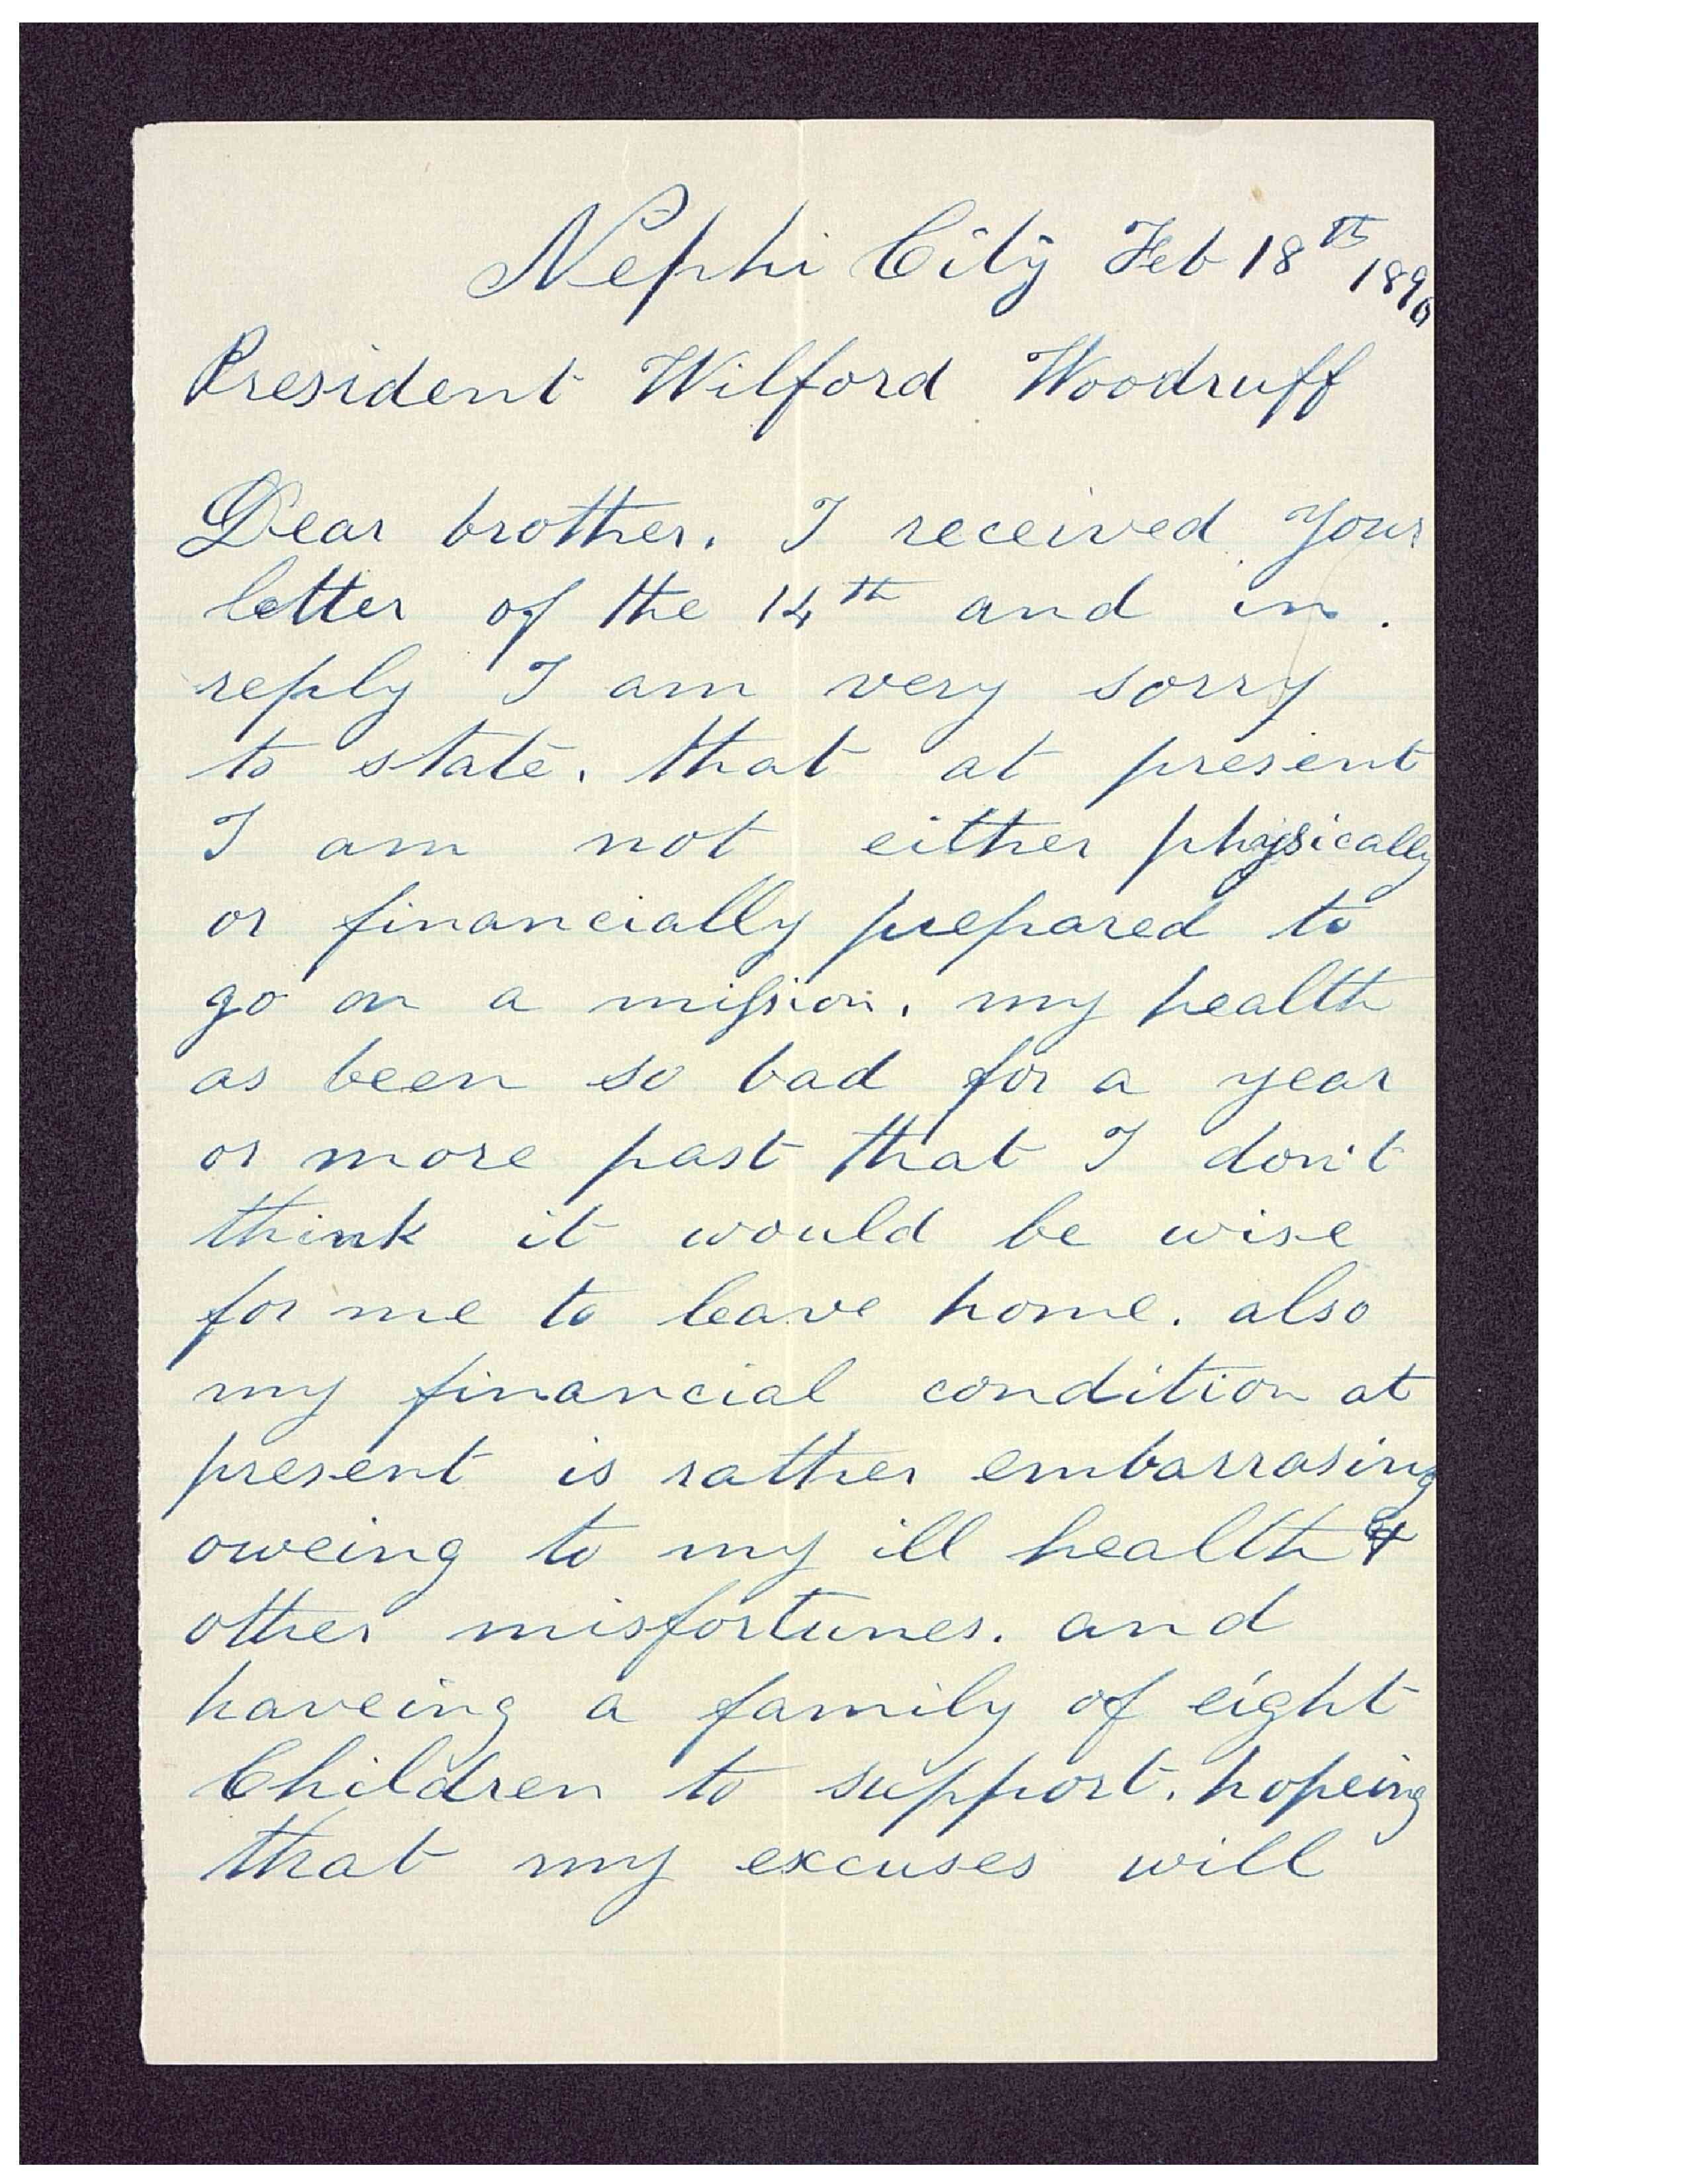 Nephi City Feb 18th 1890
President Wilford Woodruff
Dear brother. I received Your
letter of the 14th and in.
reply I am very sorry
to state. that at present
I am not either physically
or financially prepared to
go on a mission. my health
as been so bad for a year
or more past that I don't
think it would be wise
for me to leave home. also
my financial condition at
present is rather embarrasing
oweing to my ill health &
other misfortunes. and
haveing a family of eight
Children to support. hopeing
that my excuses will